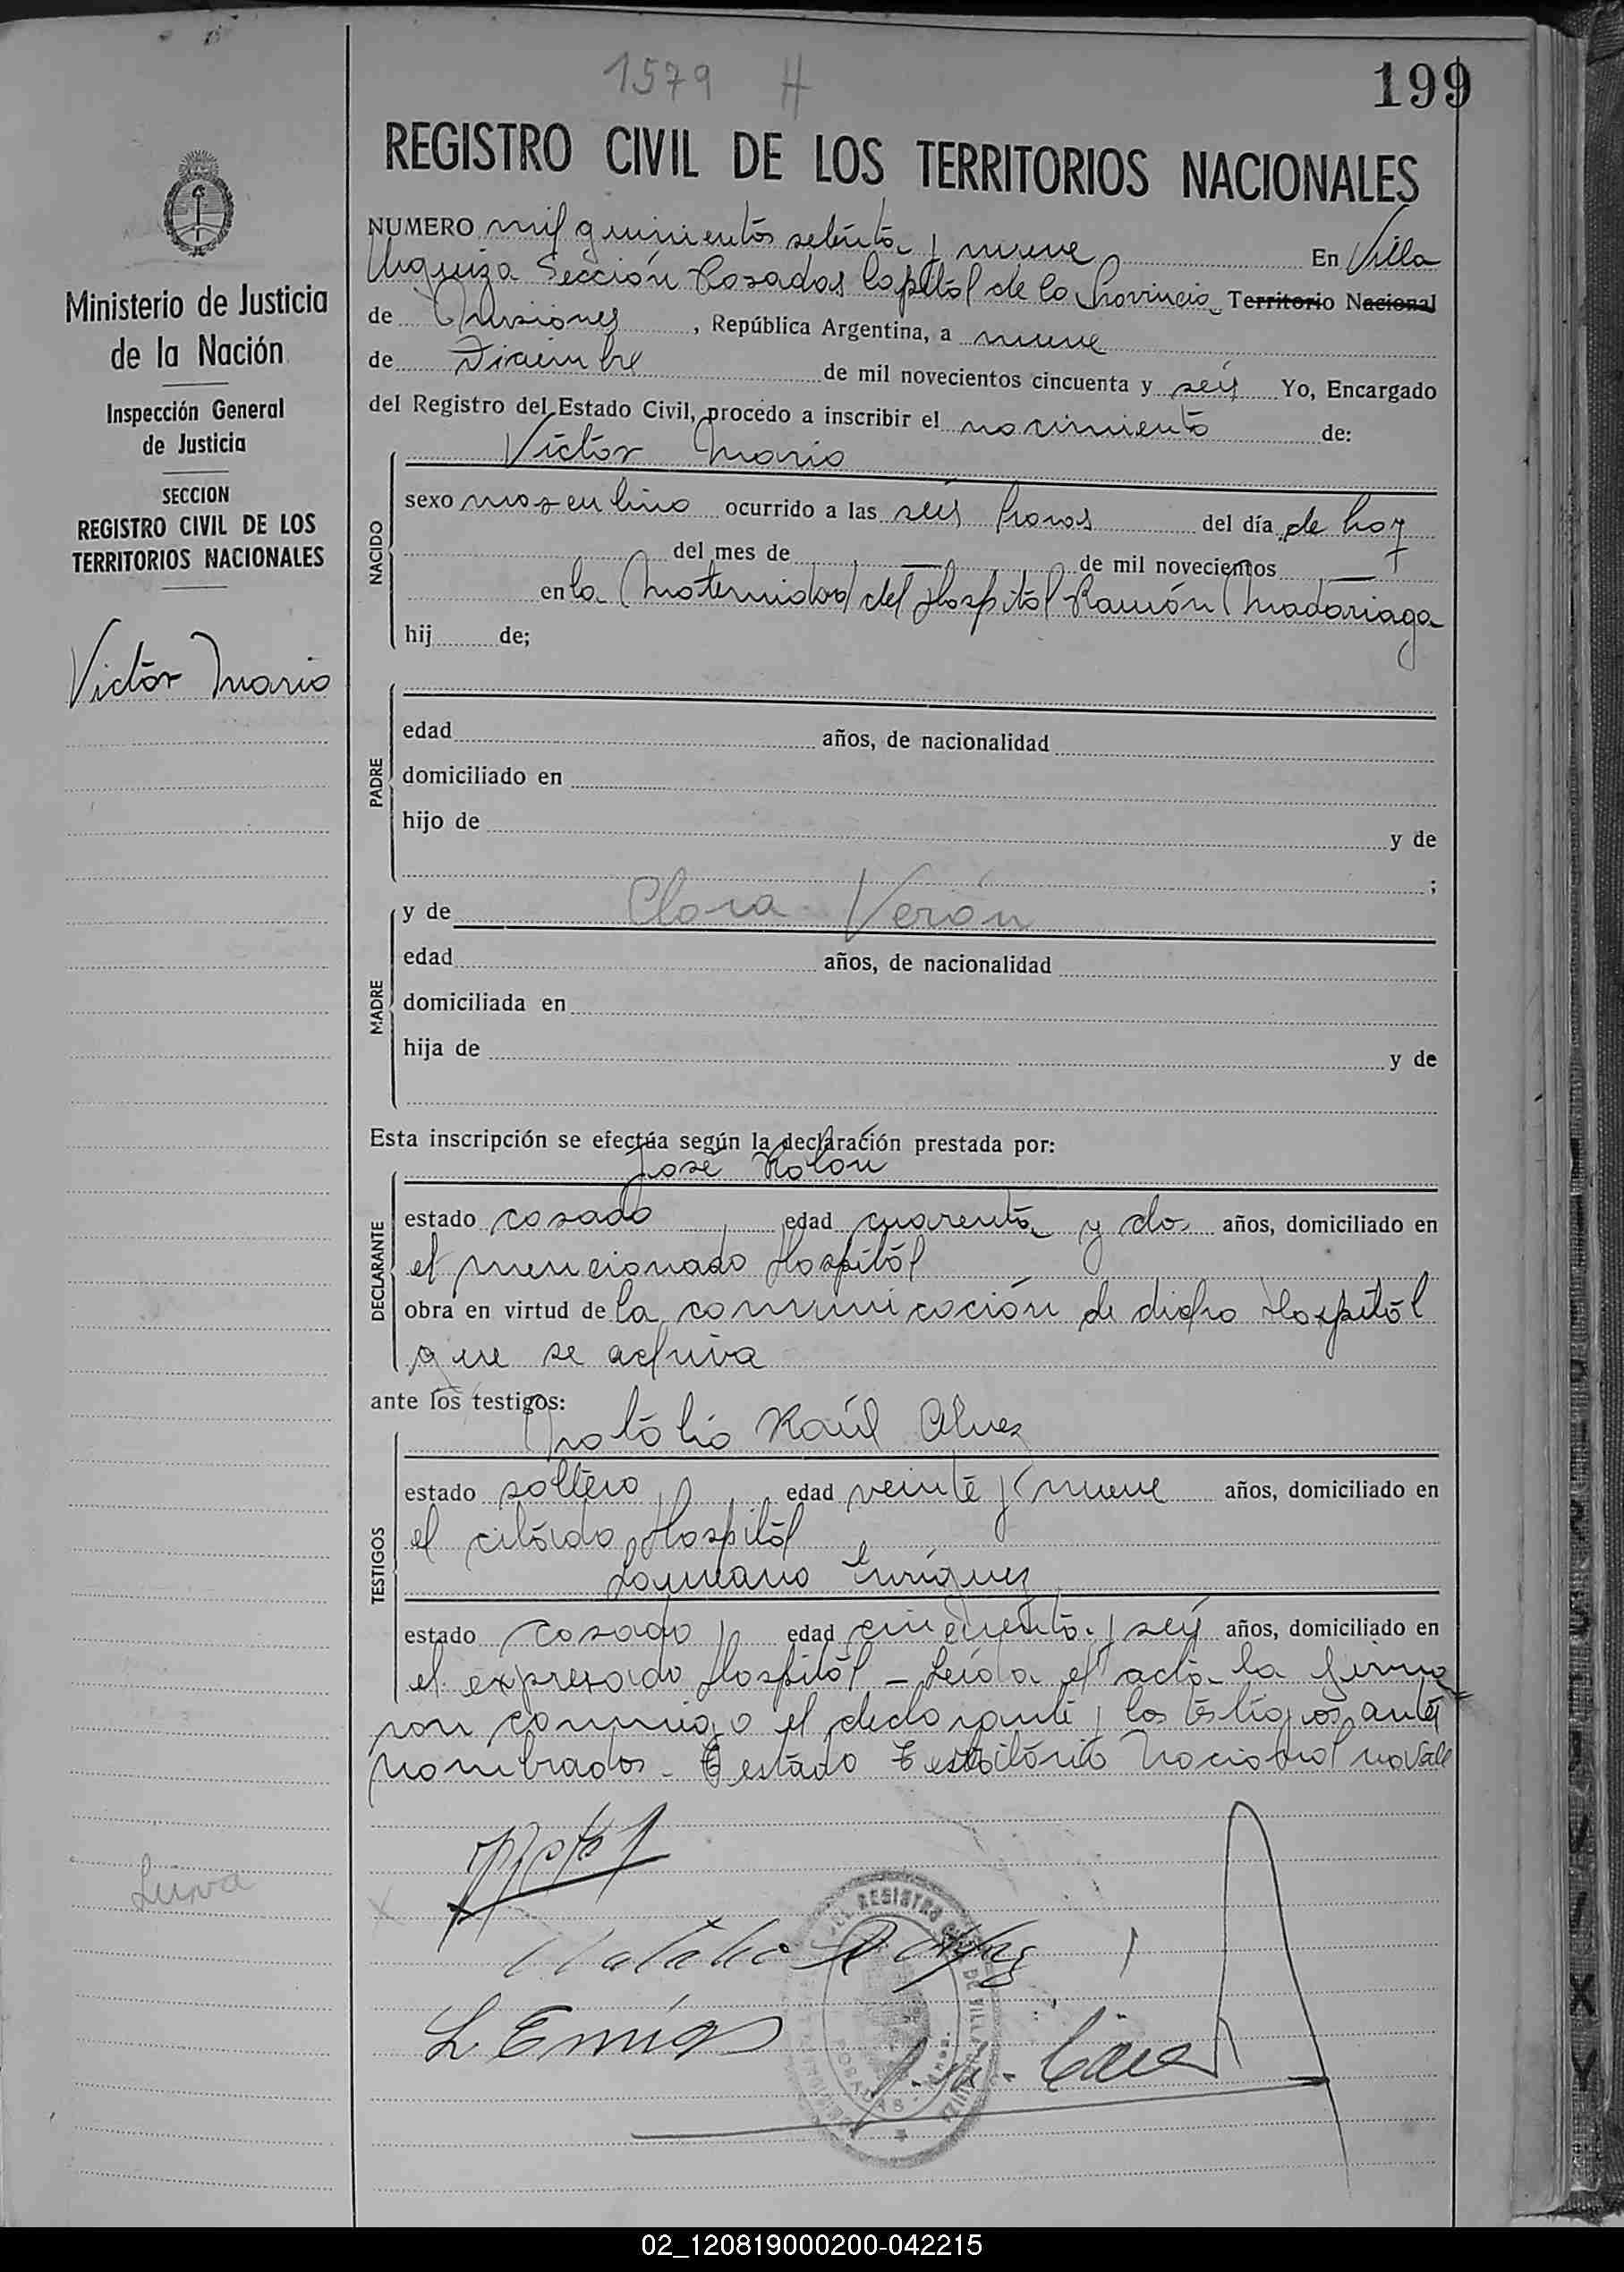 1579 H
199
REGISTRO CIVIL DE LOS TERRITORIOS NACIONALES
Ministerio de Justicia
de la Nación
Inspección General
de Justicia
SECCION
REGISTRO CIVIL DE LOS
TERRITORIOS NACIONALES
Victor Mario
Luisa
NUMERO mil quinientos setenta y nueve En Villa
Urquiza Sección Posadas Capital de la Provincia Territorio Nacional
de Misiones, República Argentina, a nueve
de Diciembre de mil novecientos cincuenta y seis Yo, Encargado
del Registro del Estado Civil, procedo a inscribir el nacimiento de:
Victor Mario
NACIDO
sexo masculino ocurrido a las seis horas del día de hoy
del mes de de mil novecientos
en la Maternidad del Hospital Ramón Madariaga
hij de;
PADRE
edad años, de nacionalidad
domiciliado en
hijo de y de
;
MADRE
y de Clara Verón
edad años, de nacionalidad
domiciliada en
hija de y de
Esta inscripción se efectúa según la declaración prestada por:
José Rolon
DECLARANTE
estado casado edad cuarenta y dos años, domiciliado en
el mencionado Hospital
obra en virtud de la comunicación de dicho Hospital
que se archiva
ante los testigos:
Natalio Raúl Alvez
TESTIGOS
estado soltero edad veinte y nueve años, domiciliado en
el citado Hospital
Enriquez
estado casado edad cincuenta y seis años, domiciliado en
el expresado Hospital - Leída el acta la firma
ron conmigo el declarante y los testigos antes
nombrados. Testado Territorio Nacional no vale
Natalio R
L Enriq
REGISTRO DE VILLA URQUIZA
POSADAS
02_120819000200-042215